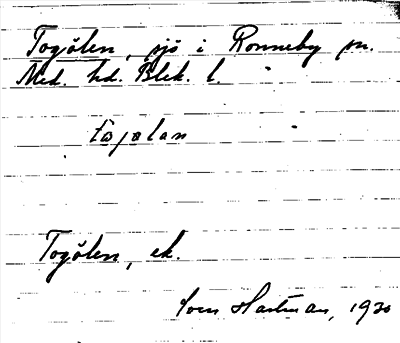 Togölen, sjö i Ronneby sn.
Med. hd. Blek. l.
tåjølan
Togölen, ek.
Sven Hartman, 1930